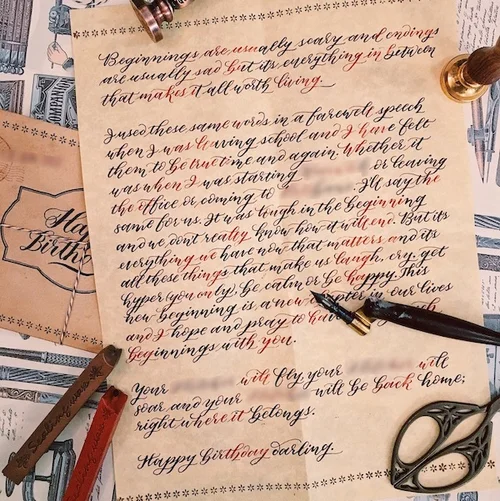 Beginnings are usually scary and endings
are usually sad but its everything in between
that makes it all worth living.
I used these same words in a farewell speech
when I was leaving school and I have felt
them to be true time and again. Whether it
was when I was starting or leaving
the office or coming to I'll say the
same for us. It was tough in the beginning
and we don't really know how it will end. But its
everything we have now that matters and its
all those things that make us laugh, cry, get
hyper (you only), be calm or be happy. This
new beginning is a new chapter in our lives
and I hope and pray to have
beginnings with you.
Your will fly, your will
soar and your will be back home;
right where it belongs.
Happy birthday darling.
Happy
Birthday
COMPANION